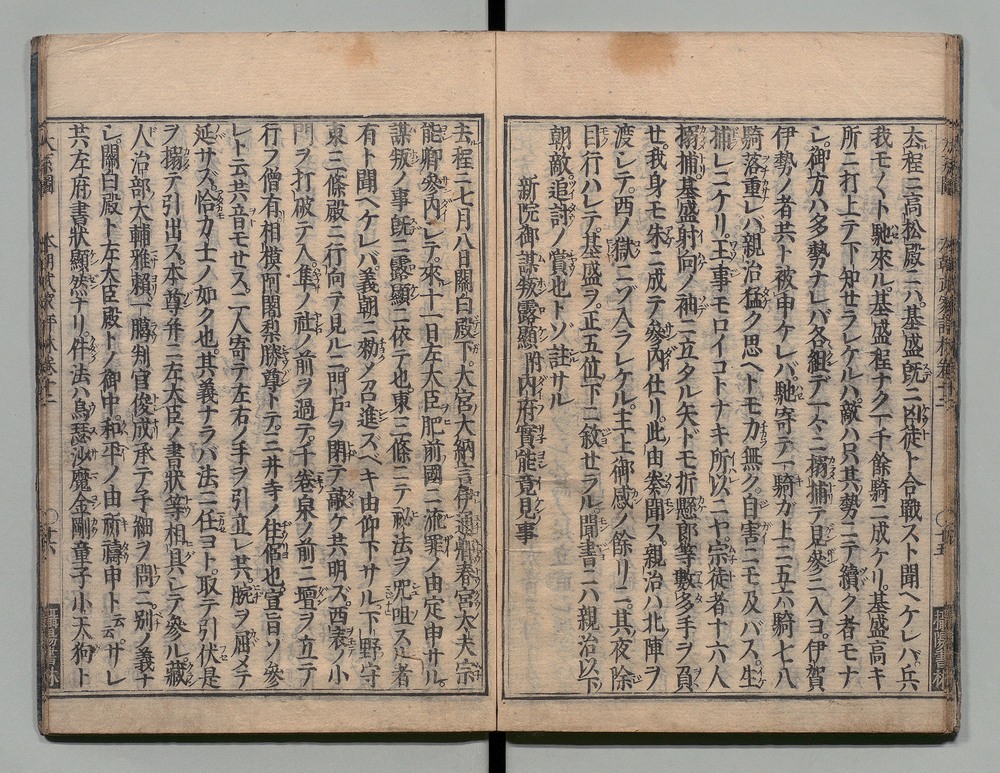 去程ニ高松殿ニハ基盛既ニ凶徒ト合戰スト聞ヘケレハ兵
我モ〱ト馳來ル基盛程ナク一千餘騎ニ成ケリ基盛高キ
所ニ打上テ下知せラレケルハ敵ハ只其勢ニテ續ク者モナ
シ御方ハ多勢ナレバ各組デ一々ニ搦捕テ見參ニ入ヨ伊賀
伊勢ノ者共ト被申ケレバ馳寄テ一騎ガ上ニ五六騎七八
騎落重レバ親治猛ク思ヘトモ力無ク自害ニモ及バス生
捕レニケリ王事モロイコトナキ所以ニヤ宗徒者十六人
搦捕基盛射向ノ袖ニ立タル矢ドモ折懸郎等數多手ヲ負
せ我身モ朱ニ成テ參內仕リ此由奏聞ス親治ハ北陣ヲ
渡シテ西ノ獄ニゾ入ラレケル主上御感ノ餘リニ其夜除
目行ハレテ基盛ヲ正五位下ニ敘せラル聞書ニ六親治以下
朝敵追討ノ賞也トゾ註サル
新院御謀叛露顯附內府實能意見事
去程ニ七月八日關白殿下大宮大納言伊通卿春宮大夫宗
能卿參內シテ來十一日左大臣肥前國ニ流罪ノ由定申サル
謀叛ノ事既ニ露顯ニ依テ也東三條ニテ祕法ヲ咒咀スル者
有ト聞ヘケレバ義朝ニ勑メ召進スベキ由仰下サル下野守
東三條殿ニ行向テ見ルニ門戶ヲ閉テ敲ケ共明ズ西表ノ小
門ヲ打破テ入隼ノ社ノ前ヲ過テ千卷泉ノ前ニ壇ヲ立テ
行フ僧有相模阿闍梨勝尊トテ三井寺ノ住侶也宣旨ソ參
レト云共音モせス二人寄テ左右ノ手ヲ引立レ共腕ヲ屈メテ
延サズ恰力士ノ如ク也其義ナラバ法ニ任ヨト取テ引伏是
ヲ搦テ引出ス本尊幷ニ左大臣ノ書狀等相具シテ參ル藏
人治部大輔雅賴一﨟判官俊成承テ子細ヲ問ニ別ノ義ナ
シ關白殿ト左大臣殿トノ御中和平ノ由祈禱申ト云云サレ
共左府書狀顯然ナリ件法ハ烏瑟沙魔金剛童子小天狗ト